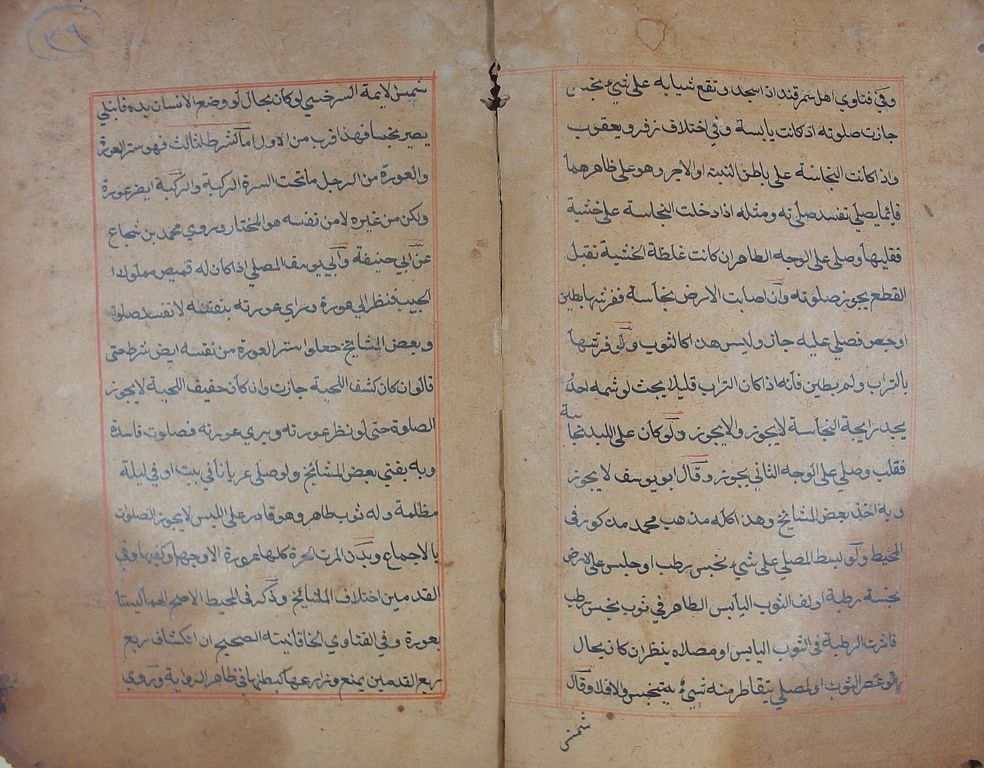 وفي فتاوى اهل سمرقند اذا سجد وتقع ثيابه على شيء نجس
جازت صلوته اذا كانت يابسة وفي اختلاف زفر ويعقوب
واذا كانت النجاسة على باطن اللبنة او الاجر وهو على ظاهرهما
قائما يصلي تفسد صلوته ومثله اذا دخلت النجاسة على خشبة
فقلبها وصلى على الوجه الطاهر ان كانت غلظة الخشبة تقبل
القطع يجوز صلوته وان اصابت الارض نجاسة ففرشها بطين
او جص فصلى عليه جاز وليس هذا كالثوب ولو فرشها
بالتراب ولم يطين فانه اذا كان التراب قليلا بحيث لو شمه احد
يجد رايحة النجاسة لا يجوز والا يجوز ولو كان على اللبد نجاسة
فقلب وصلى على الوجه الثاني يجوز وقال ابو يوسف لا يجوز
وبه اخذ بعض المشائخ وهذا كله مذهب محمد مذكور في
المحيط ولو بسط المصلي على شيء نجس رطب او جلس على ارض
نجسة رطبة او لف الثوب اليابس الطاهر في ثوب نجس رطب
فاثرت الرطبة في الثوب اليابس او مصلاه ينظر ان كان بحال
لو عصر الثوب او المصلى يتقاطر منه شيء يتنجس والا فلا وقال
شمس
٣٩
شمس لايمة السرخسي لو كان بحال لو وضع الانسان يده فابتلي
يصير نجسا فهذا اقرب من الاول اما الشرط الثالث فهو ستر العورة
والعورة من الرجل ما تحت السرة الركبة والركبة ايضا عورة
ولكن من غيره لا من نفسه هو المختار وروي محمد بن شجاع
عن ابي حنيفة وابي يوسف المصلي اذا كان له قميص محلول
الجيب فنظر الى عورة وراي عورته بنفسه لا تفسد صلوته
وبعض المشائخ جعلوا ستر العورة من نفسه ايض شرط حتى
قالوا ان كان كشف اللحية جازت وان كان خفيف اللحية لا يجوز
الصلوة حتى لو نظر عورته ويري عورته فصلوته فاسدة
وبه يفتي بعض المشائخ ولو صلى عريانا في بيت او في ليلة
مظلمة وله ثوب طاهر وهو قادر على اللبس لا يجوز الصلوت
بالاجماع وبدن المرت الحرة كلها عورة الا وجهها وكفيها وفي
القدمين اختلاف المشائخ وذكر في المحيط الاصح انهما ليستا
بعورة وفي الفتاوي الخاقانيته الصحيح ان انكشاف ربع
ربع القدمين يمنع وذراعها كبطنها في ظاهر الرواية وروي